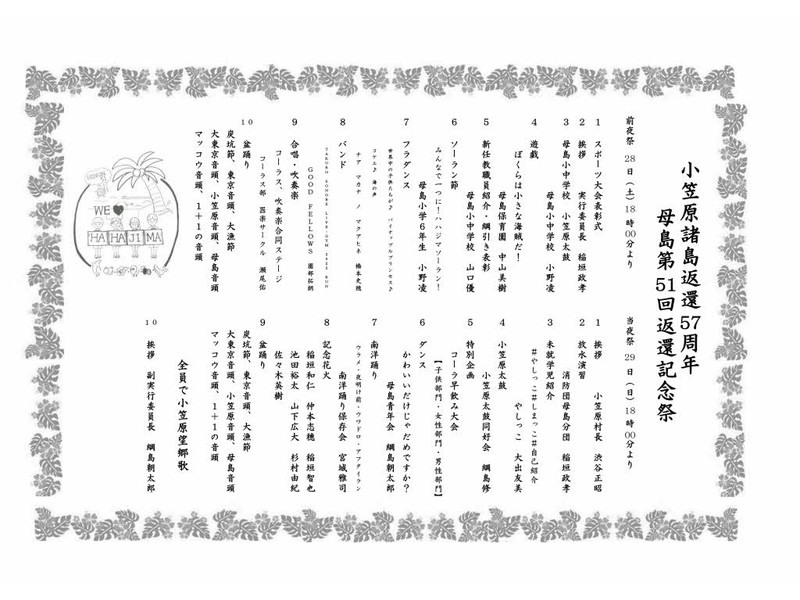 小笠原諸島返還57周年
母島第51回返還記念祭
前夜祭 28日(土)18時00分より
1 スポーツ大会表彰式
2 挨拶 実行委員長 稲垣政孝
3 母島小中学校 小笠原太鼓
母島小中学校 小野凌
4 遊戯
ぼくらは小さな海賊だ!
母島保育園 中山美樹
5 新任教職員紹介・綱引き表彰
母島小中学校 山口優
6 ソーラン節
みんなで一つに!ハハジマソーラン!
母島小学6年生 小野凌
7 フラダンス
世界中の子供たちが♪ ハイティブルプリンセス♪
コケエ♪ 海の声
ナア マカナ ノ マクアヒネ 橋本史穂
8 バンド
GOOD FELLOWS 園部拓朗
9 合唱・吹奏楽
コーラス、吹奏楽合同ステージ
コーラス部 器楽サークル 瀬尾佑
10 盆踊り
炭坑節、東京音頭、大漁節
大東京音頭、小笠原音頭、母島音頭
マッコウ音頭、1+1の音頭
WE ♥
HAHAJIMA
当夜祭 29日(日)18時00分より
1 挨拶 小笠原村長 渋谷正昭
2 放水演習
消防団母島分団 稲垣政孝
3 未就学児紹介
#やしっこ#しまっこ#自己紹介
やしっこ 大出友美
4 小笠原太鼓
小笠原太鼓同好会 綱島修
5 特別企画
コーラ早飲み大会
【子供部門・女性部門・男性部門】
6 ダンス
かわいいだけじゃだめですか?
母島青年会 綱島朝太郎
7 南洋踊り
ウラメ・夜明け前・ウワドロ・アフタイラン
南洋踊り保存会 宮城雅司
8 記念花火
稲垣和仁 仲本志穂 稲垣智也
池田裕太 山下広大 杉村由紀
佐々木英樹
9 盆踊り
炭坑節、東京音頭、大漁節
大東京音頭、小笠原音頭、母島音頭
マッコウ音頭、1+1の音頭
全員で小笠原望郷歌
10 挨拶 副実行委員長 綱島朝太郎